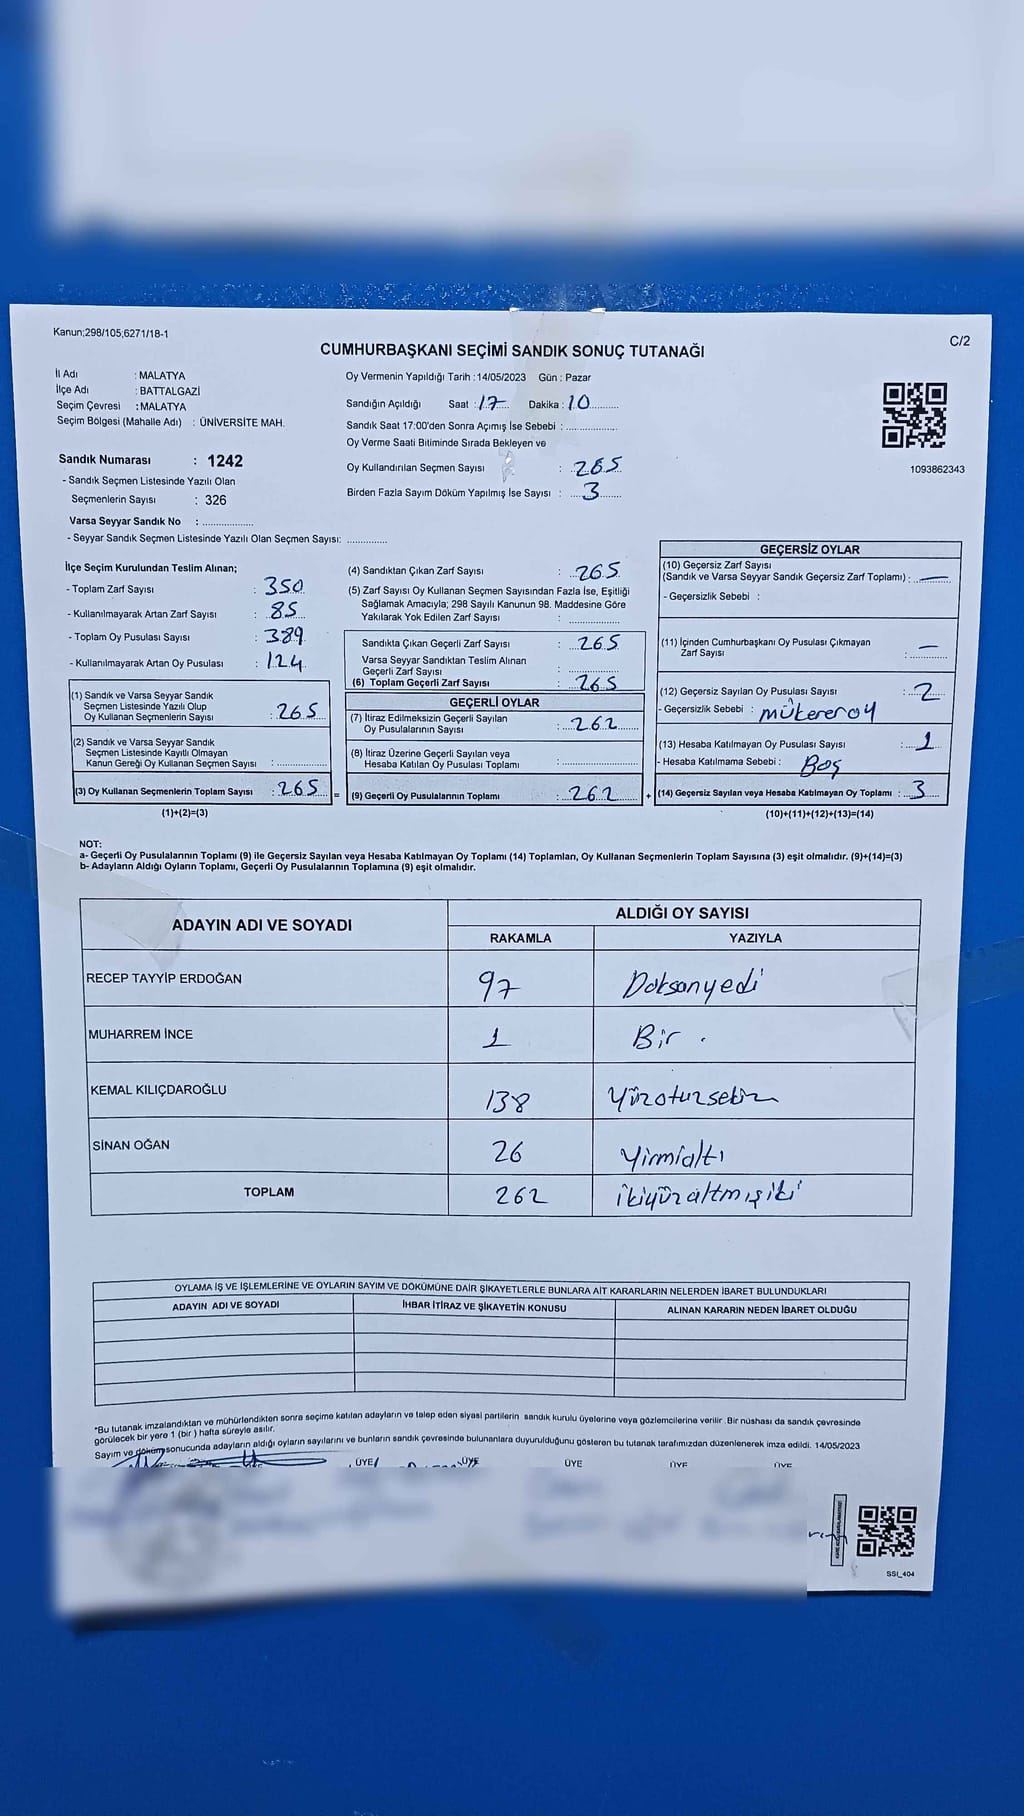 Kanun;298/105;6271/18-1
C/2
CUMHURBAŞKANI SEÇİMİ SANDIK SONUÇ TUTANAĞI
İl Adı : MALATYA
İlçe Adı : BATTALGAZİ
Seçim Çevresi : MALATYA
Seçim Bölgesi (Mahalle Adı) : ÜNİVERSİTE MAH.
Sandık Numarası : 1242
- Sandık Seçmen Listesinde Yazılı Olan
Seçmenlerin Sayısı : 326
Varsa Seyyar Sandık No : ...............
- Seyyar Sandık Seçmen Listesinde Yazılı Olan Seçmen Sayısı: ............
Oy Vermenin Yapıldığı Tarih : 14/05/2023 Gün : Pazar
Sandığın Açıldığı Saat : 17 Dakika : 10
Sandık Saat 17:00'den Sonra Açımış İse Sebebi : ...............
Oy Verme Saati Bitiminde Sırada Bekleyen ve
Oy Kullandırılan Seçmen Sayısı : 265
Birden Fazla Sayım Döküm Yapılmış İse Sayısı : 3
1093862343
İlçe Seçim Kurulundan Teslim Alınan;
- Toplam Zarf Sayısı : 350
- Kullanılmayarak Artan Zarf Sayısı : 85
- Toplam Oy Pusulası Sayısı : 389
- Kullanılmayarak Artan Oy Pusulası : 124
(1) Sandık ve Varsa Seyyar Sandık
Seçmen Listesinde Yazılı Olup
Oy Kullanan Seçmenlerin Sayısı : 265
(2) Sandık ve Varsa Seyyar Sandık
Seçmen Listesinde Kayıtlı Olmayan
Kanun Gereği Oy Kullanan Seçmen Sayısı : ...............
(3) Oy Kullanan Seçmenlerin Toplam Sayısı : 265
(1)+(2)=(3)
=
(4) Sandıktan Çıkan Zarf Sayısı : 265
(5) Zarf Sayısı Oy Kullanan Seçmen Sayısından Fazla İse, Eşitliği
Sağlamak Amacıyla; 298 Sayılı Kanunun 98. Maddesine Göre
Yakılarak Yok Edilen Zarf Sayısı : ...............
Sandıkta Çıkan Geçerli Zarf Sayısı : 265
Varsa Seyyar Sandıktan Teslim Alınan
Geçerli Zarf Sayısı : ...............
(6) Toplam Geçerli Zarf Sayısı : 265
GEÇERLİ OYLAR
(7) İtiraz Edilmeksizin Geçerli Sayılan
Oy Pusulalarının Sayısı : 262
(8) İtiraz Üzerine Geçerli Sayılan veya
Hesaba Katılan Oy Pusulası Toplamı : ...............
(9) Geçerli Oy Pusulalarının Toplamı : 262
+
GEÇERSİZ OYLAR
(10) Geçersiz Zarf Sayısı
(Sandık ve Varsa Seyyar Sandık Geçersiz Zarf Toplamı) : —
- Geçersizlik Sebebi :
(11) İçinden Cumhurbaşkanı Oy Pusulası Çıkmayan
Zarf Sayısı : —
(12) Geçersiz Sayılan Oy Pusulası Sayısı : 2
- Geçersizlik Sebebi : mükerer oy
(13) Hesaba Katılmayan Oy Pusulası Sayısı : 1
- Hesaba Katılmama Sebebi : Boş
(14) Geçersiz Sayılan veya Hesaba Katılmayan Oy Toplamı : 3
(10)+(11)+(12)+(13)=(14)
NOT:
a- Geçerli Oy Pusulalarının Toplamı (9) ile Geçersiz Sayılan veya Hesaba Katılmayan Oy Toplamı (14) Toplamları, Oy Kullanan Seçmenlerin Toplam Sayısına (3) eşit olmalıdır. (9)+(14)=(3)
b- Adayların Aldığı Oyların Toplamı, Geçerli Oy Pusulalarının Toplamına (9) eşit olmalıdır.
ADAYIN ADI VE SOYADI
ALDIĞI OY SAYISI
RAKAMLA YAZIYLA
RECEP TAYYİP ERDOĞAN 97 Doksanyedi
MUHARREM İNCE 1 Bir .
KEMAL KILIÇDAROĞLU 138 Yüzotuzsekiz
SİNAN OĞAN 26 Yirmialtı
TOPLAM 262 ikiyüzaltmışiki
OYLAMA İŞ VE İŞLEMLERİNE VE OYLARIN SAYIM VE DÖKÜMÜNE DAİR ŞİKAYETLERLE BUNLARA AİT KARARLARIN NELERDEN İBARET BULUNDUKLARI
ADAYIN ADI VE SOYADI İHBAR İTİRAZ VE ŞİKAYETİN KONUSU ALINAN KARARIN NEDEN İBARET OLDUĞU
*Bu tutanak imzalandıktan ve mühürlendikten sonra seçime katılan adayların ve talep eden siyasi partilerin sandık kurulu üyelerine veya gözlemcilerine verilir. Bir nüshası da sandık çevresinde
görülecek bir yere 1 (bir) hafta süreyle asılır.
Sayım ve döküm sonucunda adayların aldığı oyların sayılarını ve bunların sandık çevresinde bulunanlara duyurulduğunu gösteren bu tutanak tarafımızdan düzenlenerek imza edildi. 14/05/2023
ÜYE ÜYE ÜYE ÜYE ÜYE
SSI_404